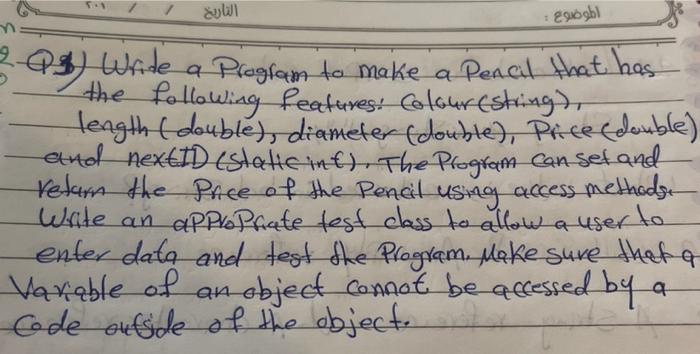 التاريخ / / ٢٠١
الموضوع :
Q3) Write a Program to make a Pencil that has
the following features: Colour (string),
length (double), diameter (double), Price (double)
and nextID (static int). The Program can set and
return the Price of the Pencil using access methods.
Write an appropriate test class to allow a user to
enter data and test the Program. Make sure that a
Variable of an object cannot be accessed by a
Code outside of the object.